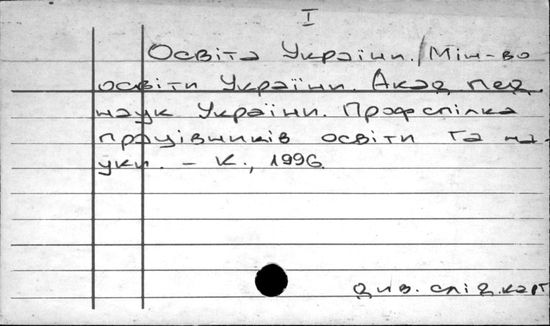 I
Освіта України. / Мін-во
освіти України. Акад пед
наук України. Профспілка
працівників освіти та на-
уки. – К., 1996.
див. слід. карт